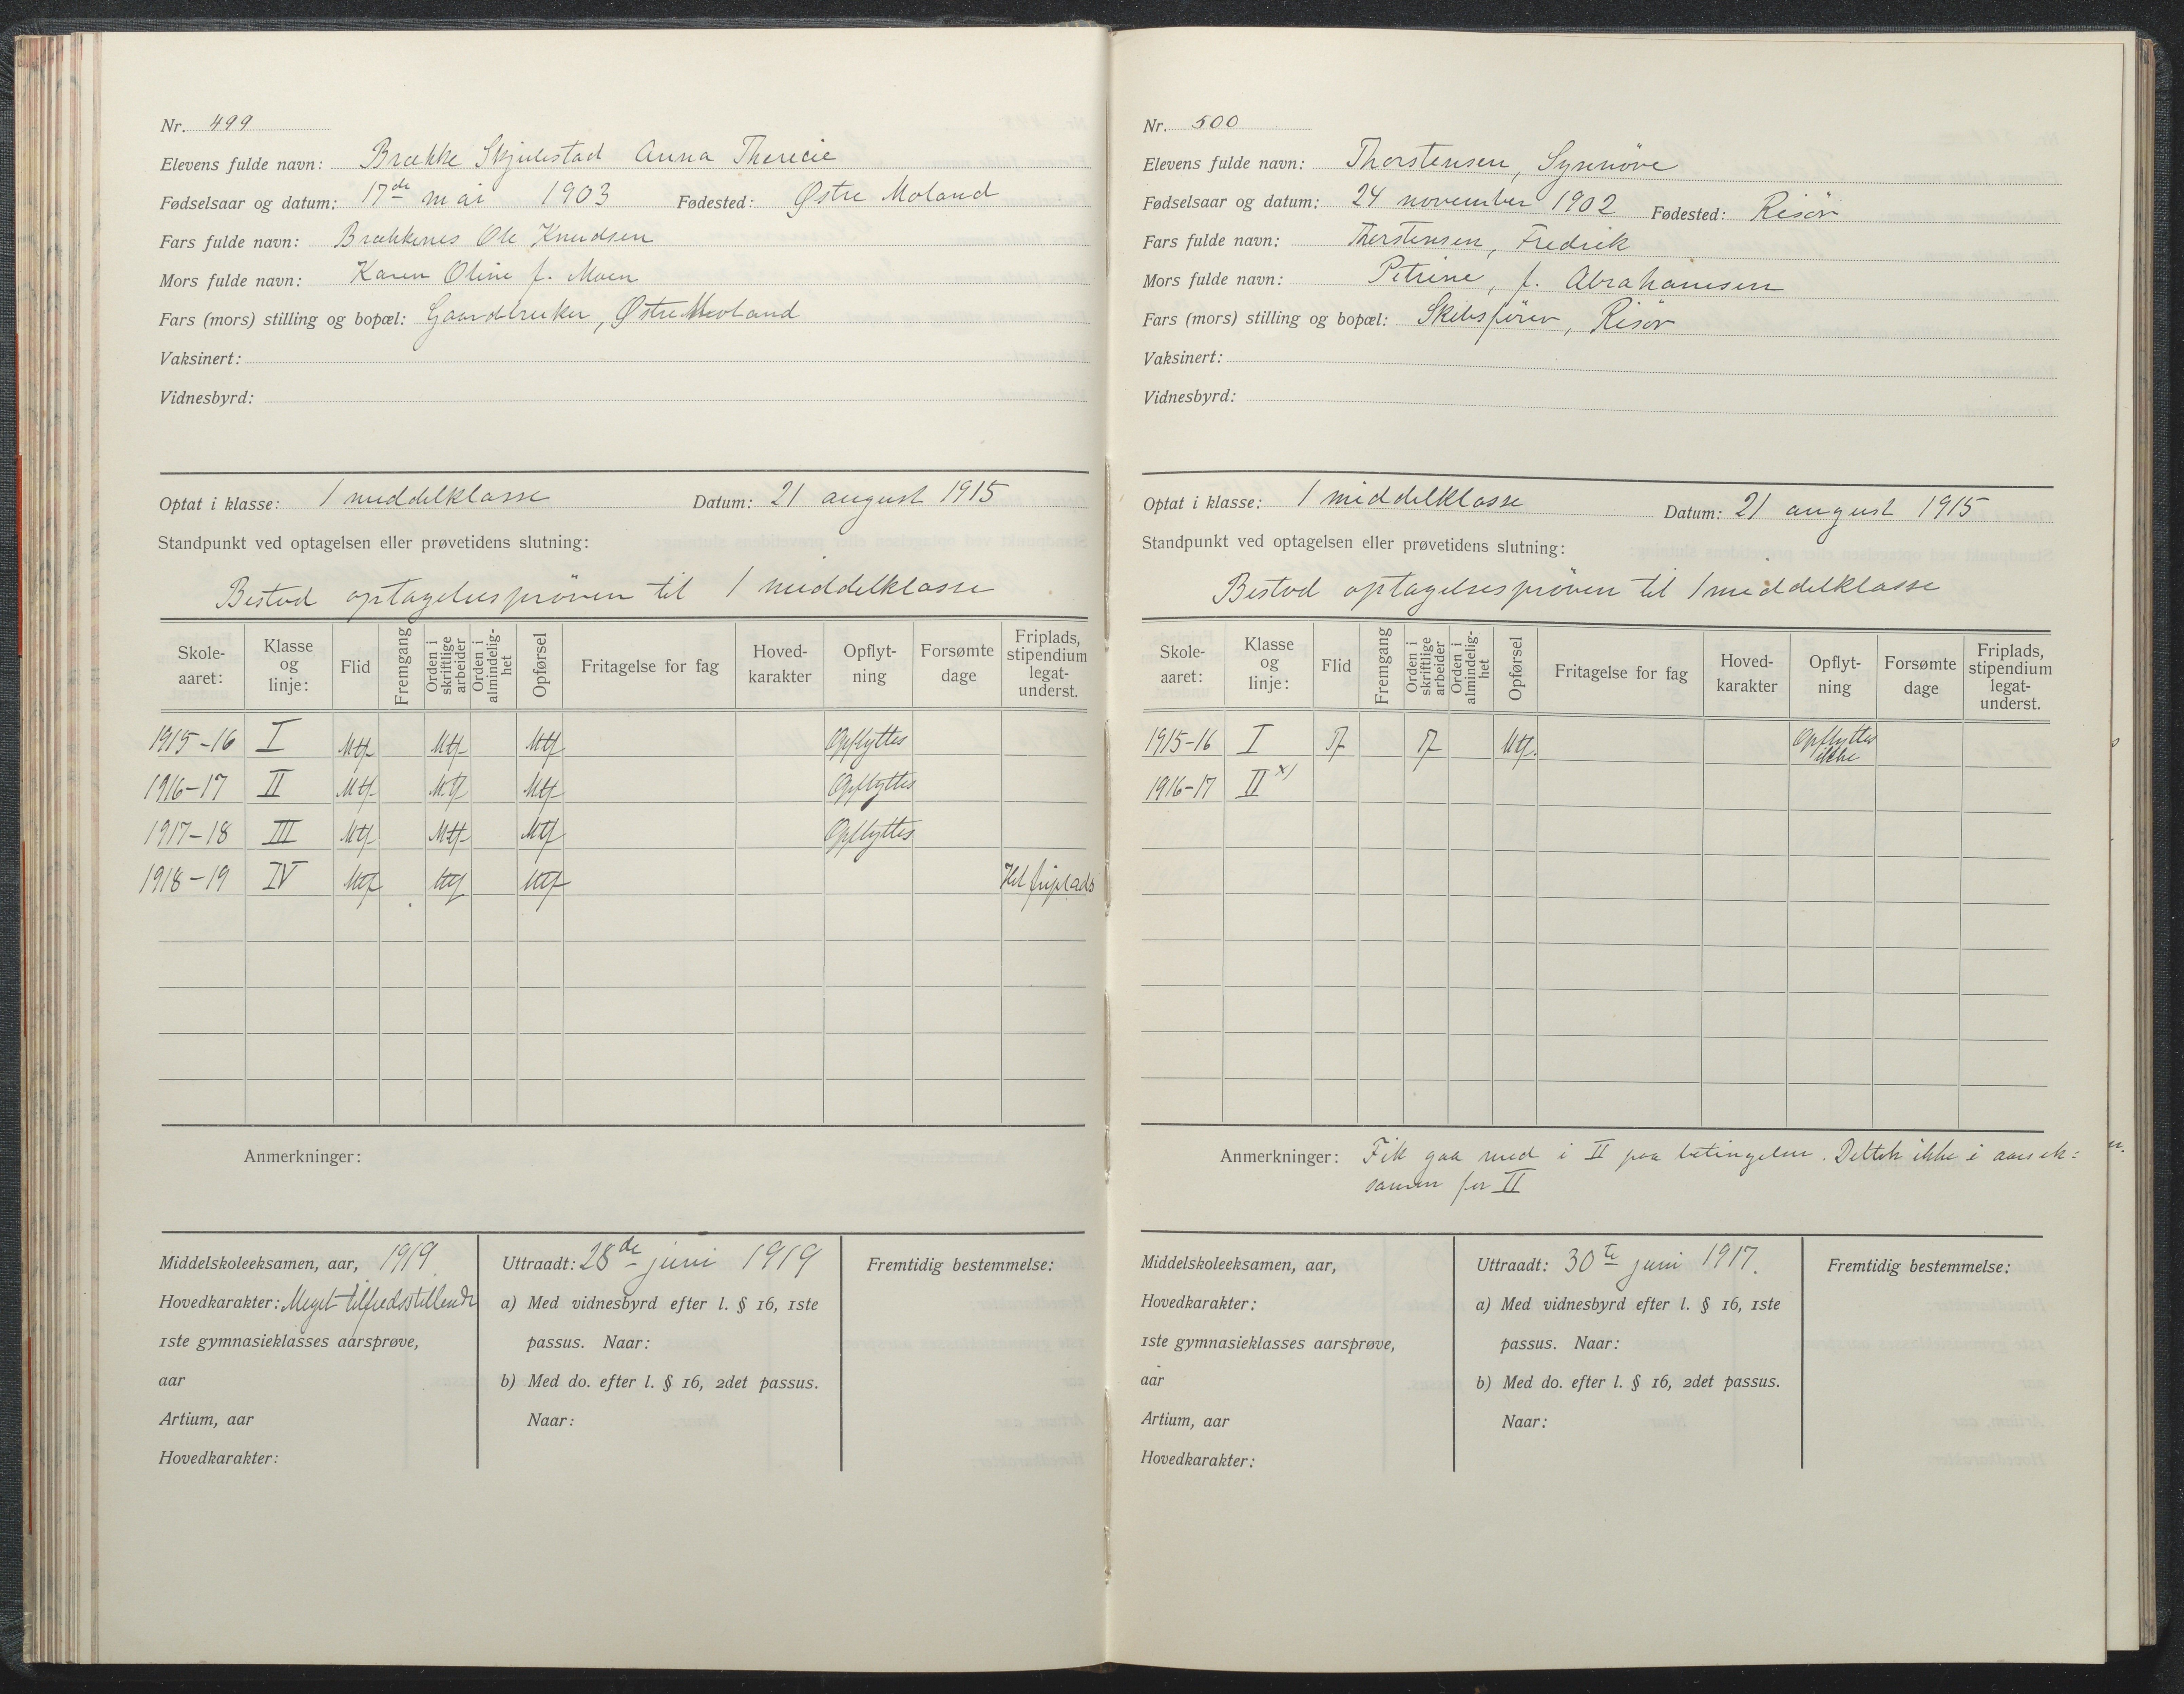 Nr. 499
Elevens fulde navn: Brække Skjulestad Anna Therecie
Fødselsaar og datum: 17de mai 1903 Fødested: Østre Moland
Fars fulde navn: Brækkenes Ole Knudsen
Mors fulde navn: Karen Oline f. Moen
Fars (mors) stilling og bopæl: Gaardbruker, Østre Moland
Vaksinert:
Vidnesbyrd:
Optat i klasse: 1 middelklasse Datum: 21 august 1915
Standpunkt ved optagelsen eller prøvetidens slutning:
Bestod optagelsesprøven til 1 middelklasse
Skole-aaret: Klasse og linje: Flid Fremgang Orden i skriftlige arbeider Orden i almindelig-het Opførsel Fritagelse for fag Hoved-karakter Opflyt-ning Forsømte dage Friplads, stipendium legat-underst.
1915-16 I Mtf Mtf Mtf Opflyttes
1916-17 II Mtf Mtf Mtf Opflyttes
1917-18 III Mtf Mtf Mtf Opflyttes
1918-19 IV Mtf Mtf Mtf Hel friplads
Anmerkninger:
Middelskoleeksamen, aar, 1919
Hovedkarakter: Meget tilfredsstillende
1ste gymnasieklasses aarsprøve,
aar
Artium, aar
Hovedkarakter:
Uttraadt: 28de juni 1919
a) Med vidnesbyrd efter l. § 16, 1ste
passus. Naar:
b) Med do. efter l. § 16, 2det passus.
Naar:
Fremtidig bestemmelse:
Nr. 500
Elevens fulde navn: Thorstensen, Synnöve
Fødselsaar og datum: 24 november 1902 Fødested: Risör
Fars fulde navn: Thorstensen, Fredrik
Mors fulde navn: Petrine, f. Abrahamsen
Fars (mors) stilling og bopæl: Skibsförer, Risör
Vaksinert:
Vidnesbyrd:
Optat i klasse: 1 middelklasse Datum: 21 august 1915
Standpunkt ved optagelsen eller prøvetidens slutning:
Bestod optagelsesprøven til 1 middelklasse
Skole-aaret: Klasse og linje: Flid Fremgang Orden i skriftlige arbeider Orden i almindelig-het Opførsel Fritagelse for fag Hoved-karakter Opflyt-ning Forsømte dage Friplads, stipendium legat-underst.
1915-16 I Tf Tf Mtf. Opflyttes ikke
1916-17 II x)
Anmerkninger: Fik gaa med i II paa betingelse. Deltok ikke i aarsek=
samen for II
Middelskoleeksamen, aar,
Hovedkarakter:
1ste gymnasieklasses aarsprøve,
aar
Artium, aar
Hovedkarakter:
Uttraadt: 30te juni 1917.
a) Med vidnesbyrd efter l. § 16, 1ste
passus. Naar:
b) Med do. efter l. § 16, 2det passus.
Naar:
Fremtidig bestemmelse: